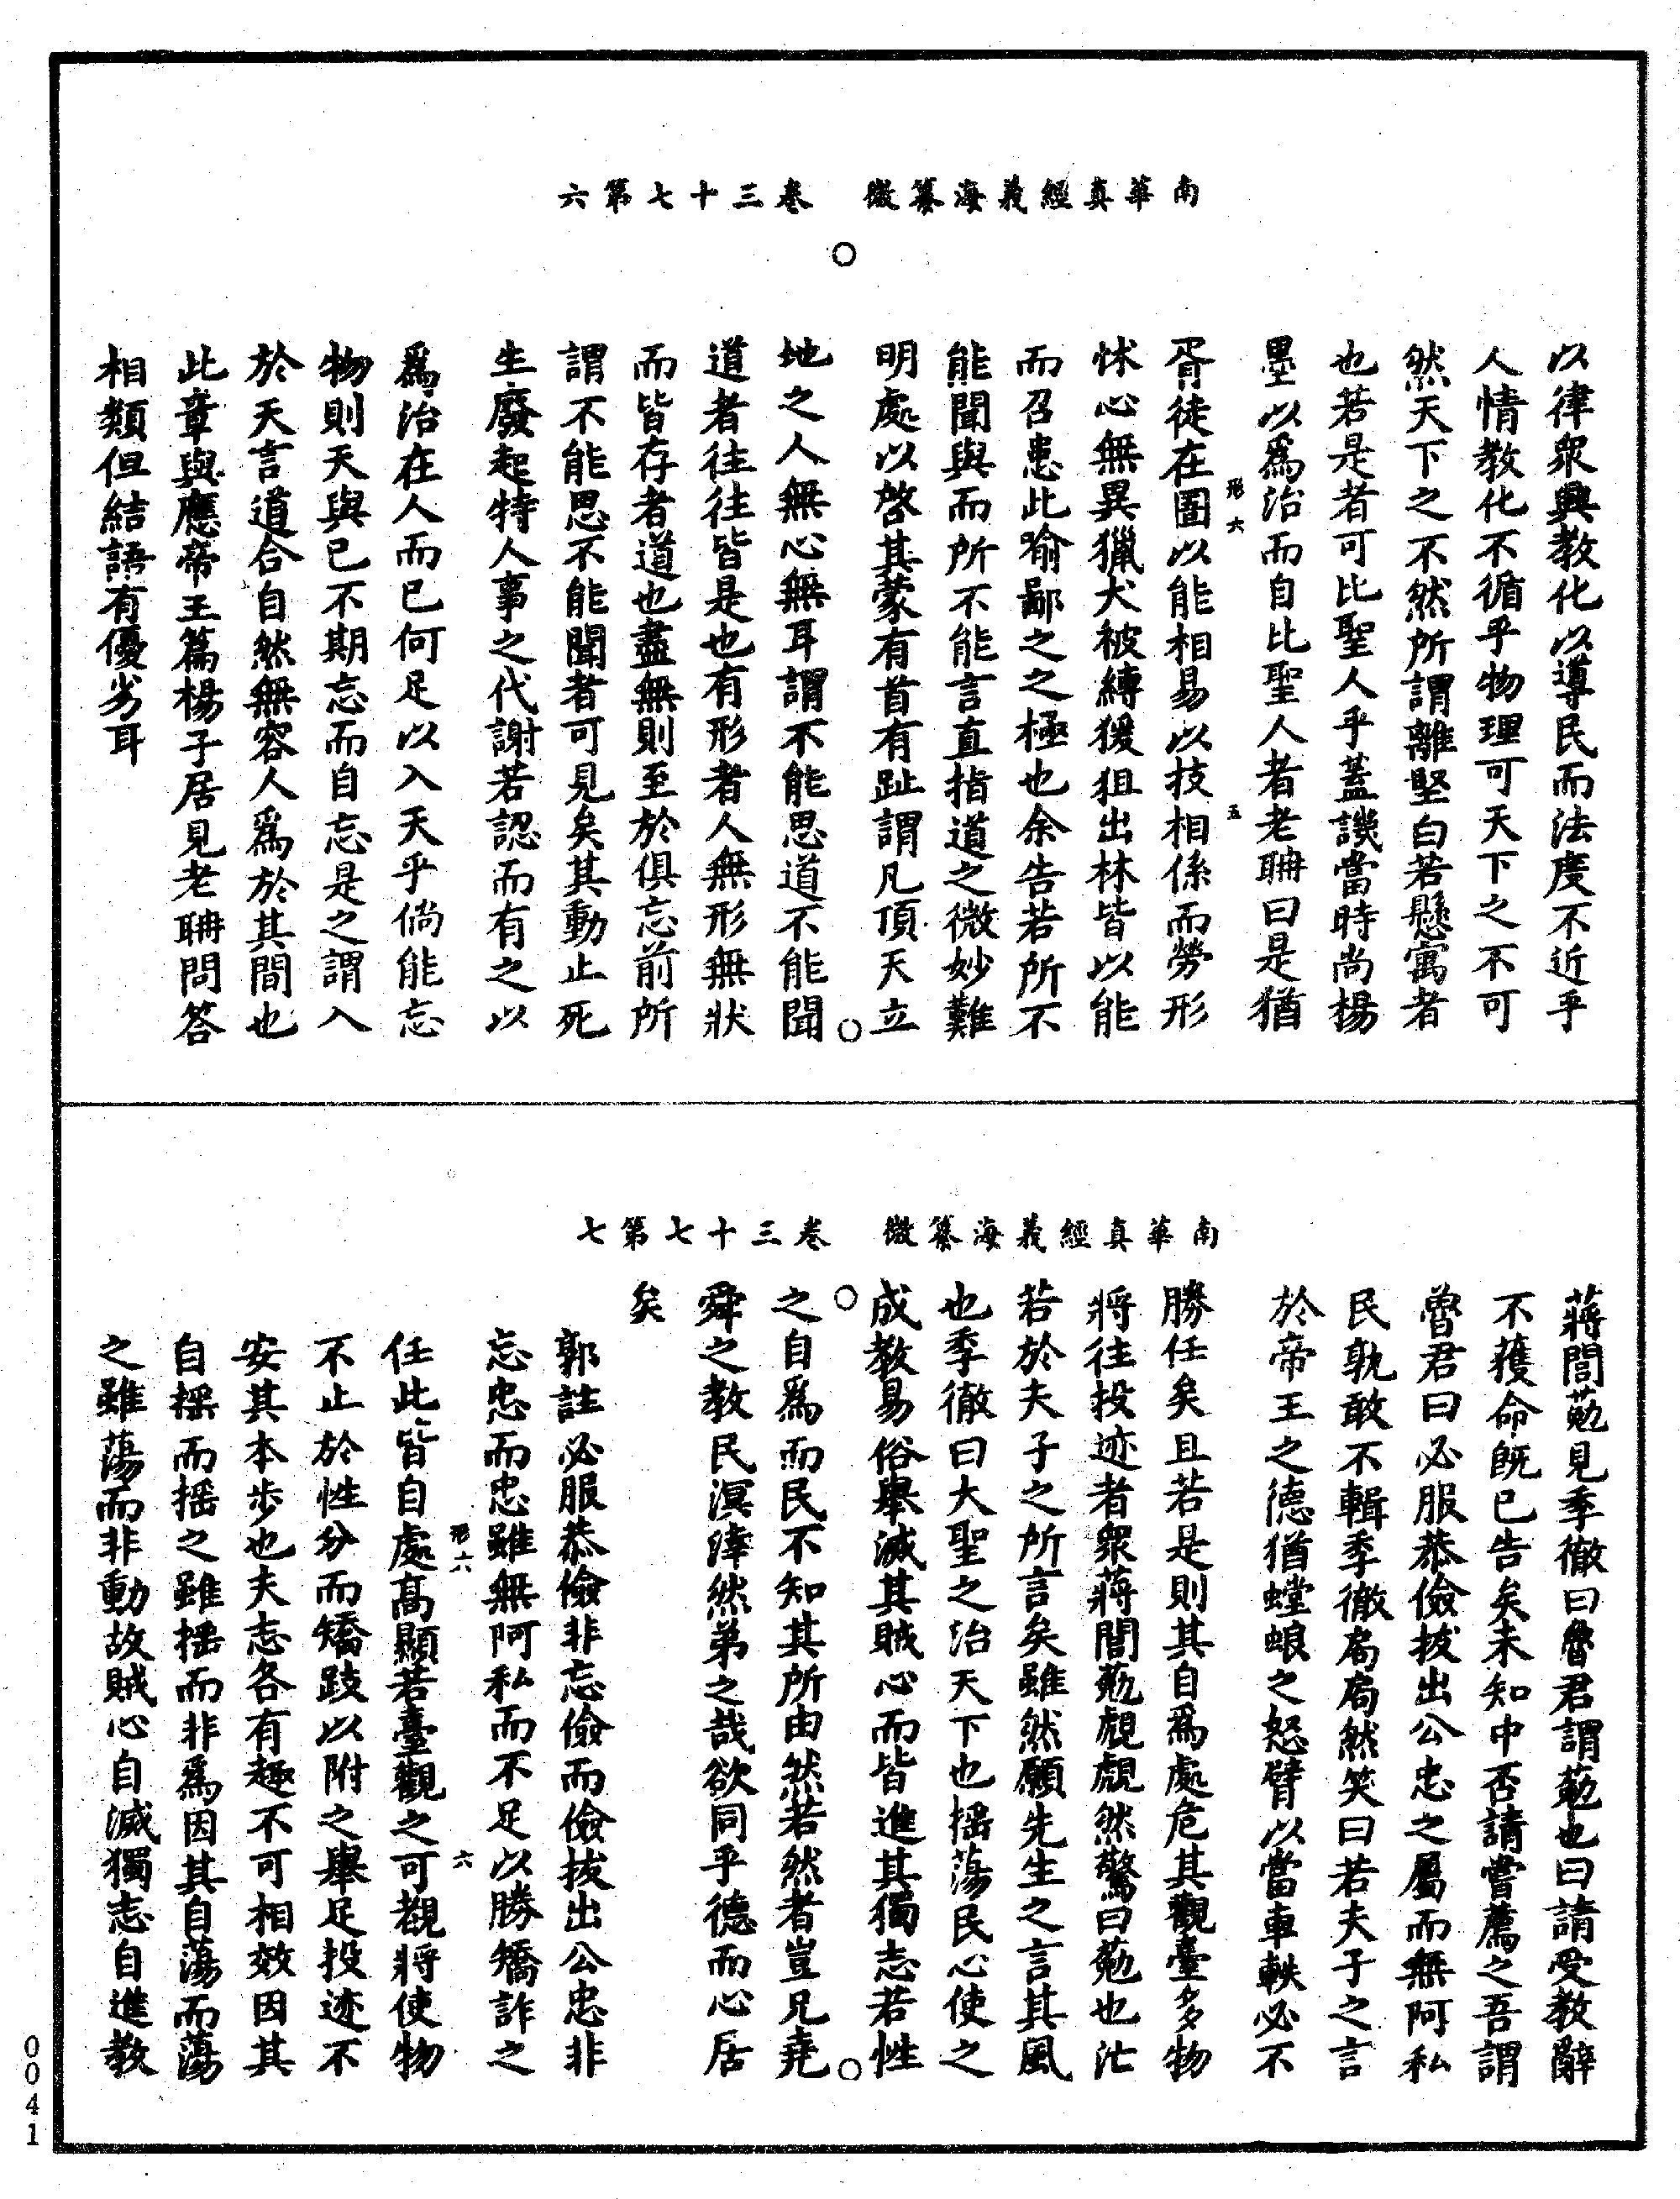 南華真經義海纂微　卷三十七第六
以律衆興教化以導民而法度不近乎
人情教化不循乎物理可天下之不可
然天下之不然所謂離堅白若懸㝢者
也若是者可比聖人乎蓋譏當時尚楊
墨以爲治而自比聖人者老聃曰是猶
胥徒在圄以能相易以技相係而勞形
怵心無異獵犬被縛猨狙出林皆以能
而召患此喻鄙之之極也余告若所不
能聞與而所不能言直指道之微妙難
明處以啓其蒙有首有趾謂凡頂天立
地之人無心無耳謂不能思道不能聞
道者往往皆是也有形者人無形無狀
而皆存者道也盡無則至於俱忘前所
謂不能思不能聞者可見矣其動止死
生廢起特人事之代謝若認而有之以
爲治在人而已何足以入天乎倘能忘
物則天與已不期忘而自忘是之謂入
於天言道合自然無容人爲於其間也
此章與應帝王篇楊子居見老聃問答
相類但結語有優劣耳
形六
五
南華真經義海纂微　卷三十七第七
蔣閭葂見季徹曰魯君謂葂也曰請受教辭
不獲命既已告矣未知中否請嘗薦之吾謂
魯君曰必服恭儉拔出公忠之屬而無阿私
民孰敢不輯季徹局局然笑曰若夫子之言
於帝王之德猶螳蜋之怒臂以當車軼必不
勝任矣且若是則其自爲處危其觀臺多物
將往投迹者衆蔣閭葂覤覤然驚曰葂也汒
若於夫子之所言矣雖然願先生之言其風
也季徹曰大聖之治天下也揺蕩民心使之
成教易俗舉滅其賊心而皆進其獨志若性
之自爲而民不知其所由然若然者豈兄堯
舜之教民溟涬然弟之哉欲同乎德而心居
矣
郭註必服恭儉非忘儉而儉拔出公忠非
忘忠而忠雖無阿私而不足以勝矯詐之
任此皆自處高顯若臺觀之可覩將使物
不止於性分而矯跂以附之舉足投迹不
安其本步也夫志各有趣不可相效因其
自揺而揺之雖揺而非爲因其自蕩而蕩
之雖蕩而非動故賊心自滅獨志自進教
形六
六
0041